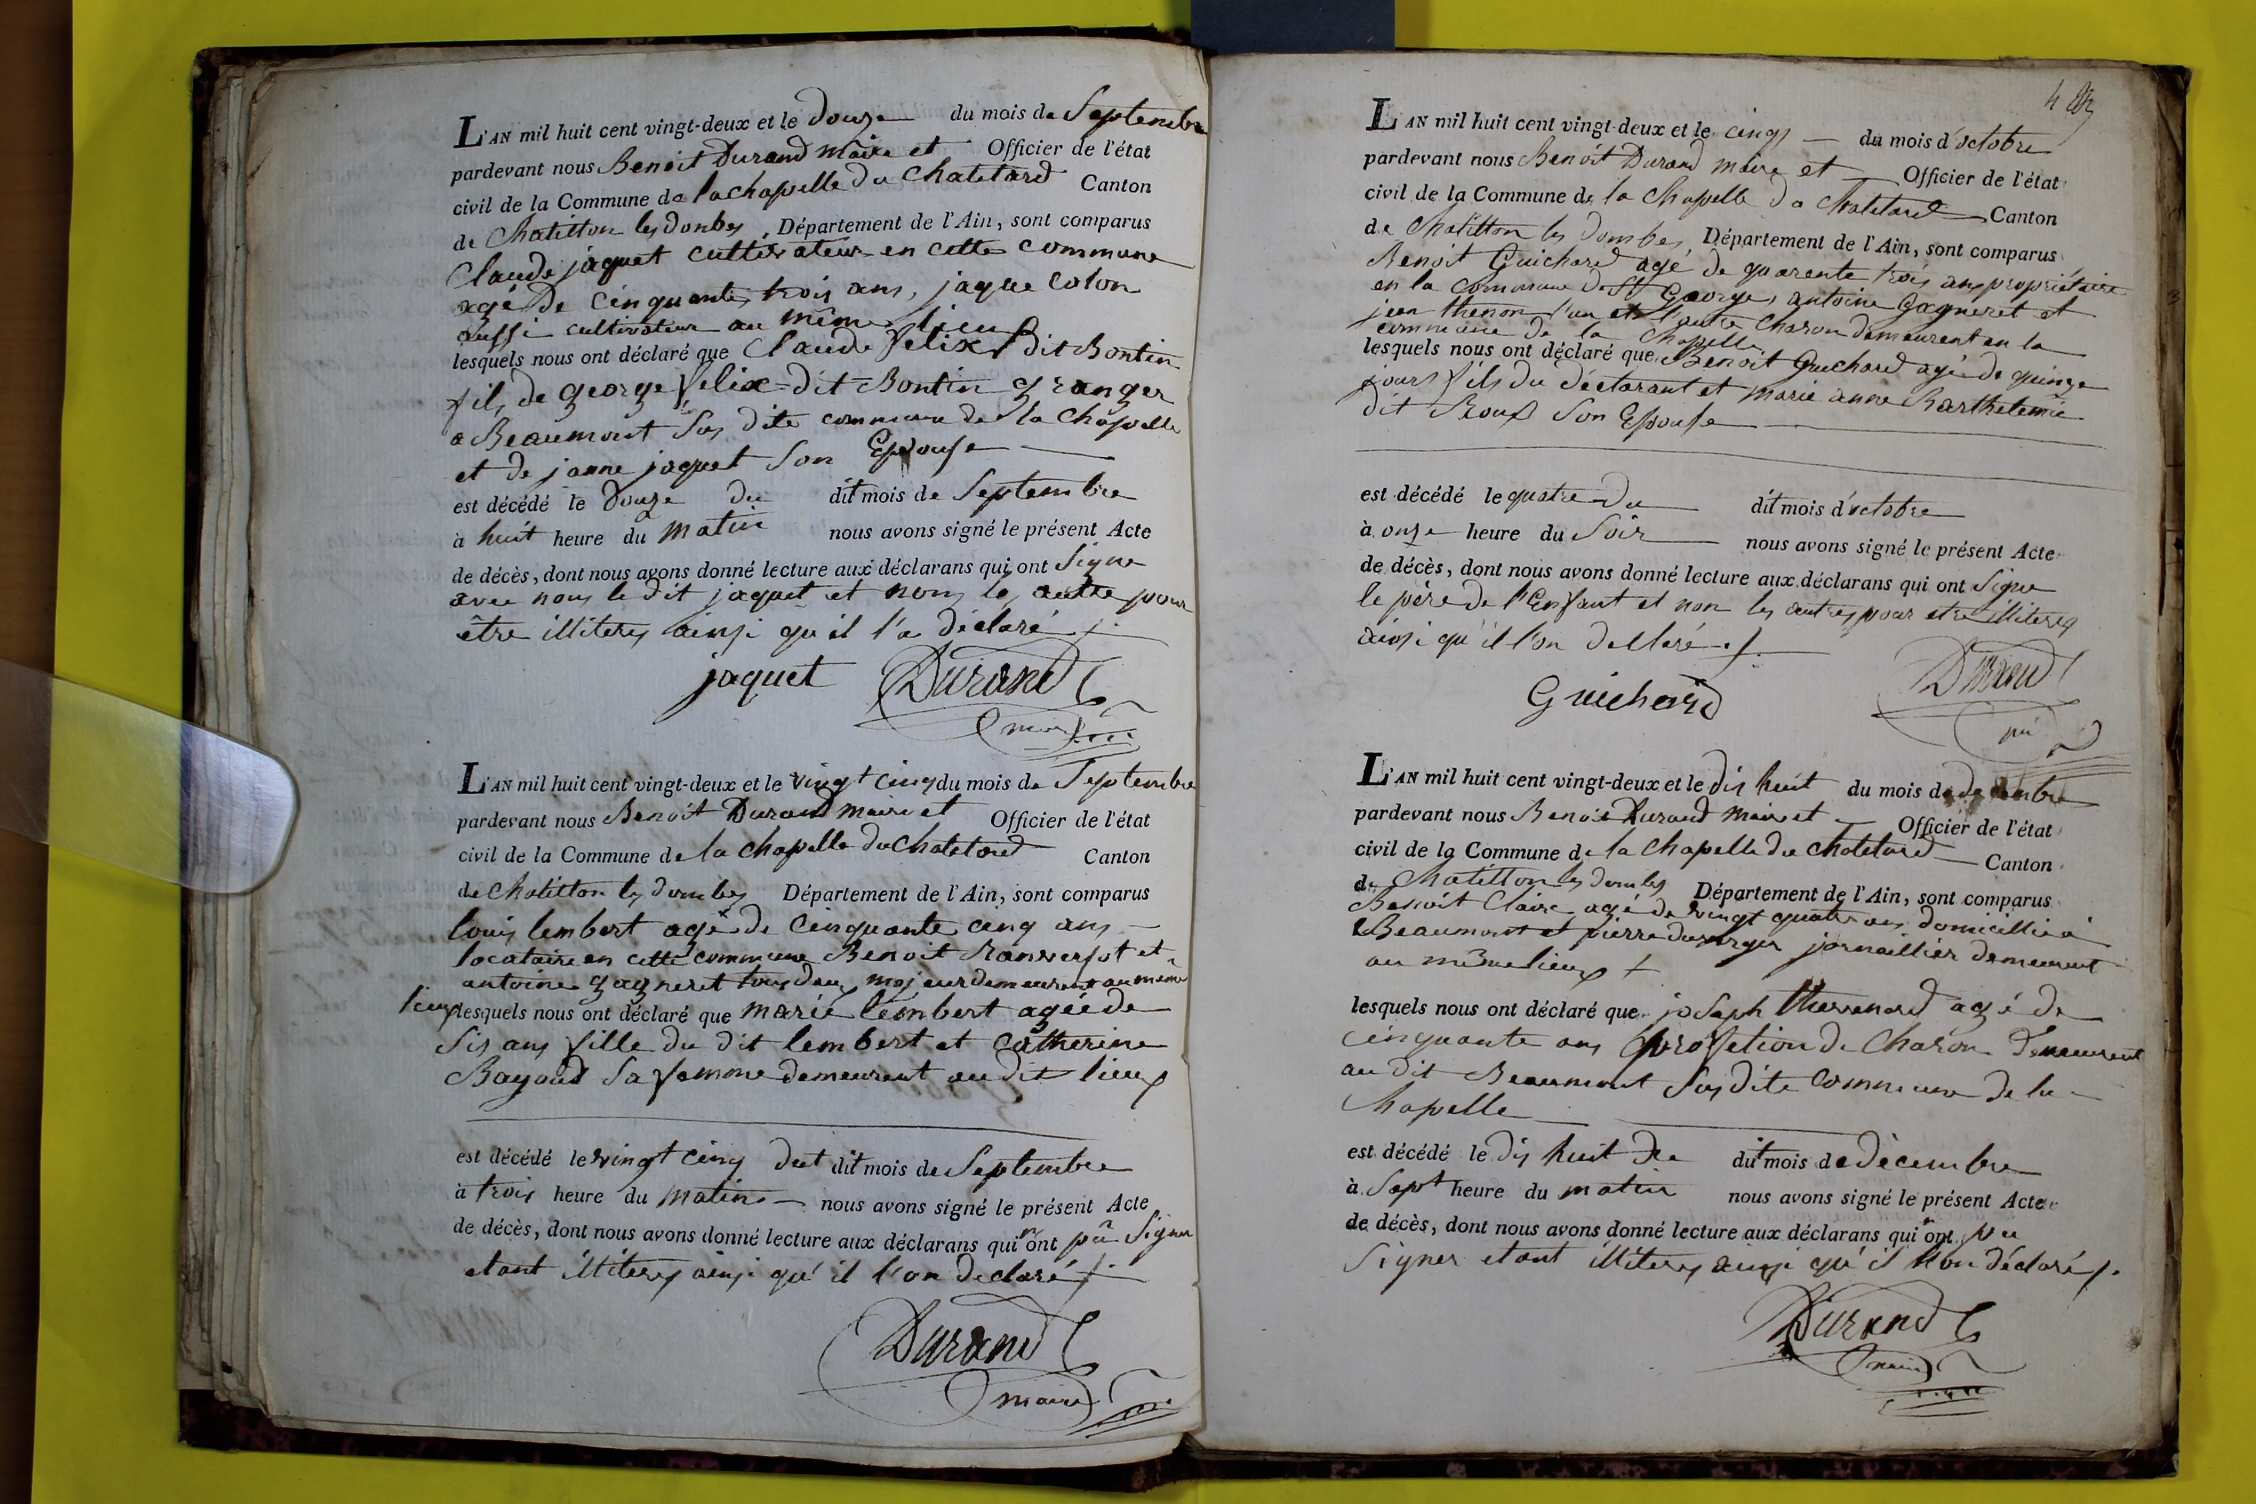 L'AN mil huit cent vingt-deux et le douze du mois de Septembre
pardevant nous Benoit Durand Maire et Officier de l'état
civil de la Commune de la chapelle du Chatelard Canton
de Chatillon les donbes, Département de l'Ain, sont comparus
Claude jaquet cultivateur en cette commune
agé de cinquante trois ans, jaque colon
aussi cultivateur au même lieux
lesquels nous ont déclaré que Claude felix dit Bontin
fils de george felix=dit=Bontin granger
a Beaumont sus dite commune de la chapelle
et de janne jaquet son Epouse
est décédé le douze du dit mois de Septembre
à huit heure du matin nous avons signé le présent Acte
de décès, dont nous avons donné lecture aux déclarans qui ont signe
avec nous le dit jaquet et nons les autte pour
être illiteres ainsi qu il l'a déclaré
jaquet Durand
maire
L'AN mil huit cent vingt-deux et le vingt cinq du mois de Septembre
pardevant nous Benoit Durand maire et Officier de l'état
civil de la Commune de la chapelle du Chatelard Canton
de Chatillon les dombes Département de l'Ain, sont comparus
louis lembert agé de cinquante cinq ans
locataire en cette commune Benoit Ranversot et
antoine gagneret tous deux majeur demeurent au meme
lieux lesquels nous ont déclaré que marie lembert agée de
Sis ans fille du dit lembert et Catherine
Bayard Sa femme demeurent au dit lieux
est décédé le vingt cinq dut dit mois de Septembre
à trois heure du matin nous avons signé le présent Acte
de décès, dont nous avons donné lecture aux déclarans qui n'ont pû Signer
etant illiteres ainsi qu'il l'on declaré
Durand
maire
4
L'AN mil huit cent vingt-deux et le cinq du mois d'octobre
pardevant nous Benoit Durand maire et Officier de l'état
civil de la Commune de la Chapelle du Chatelard Canton
de Chatillon les dombes Département de l'Ain, sont comparus
Benoit Guichard agé de quarente trois ans propriétaire
en la commune de St George, antoine Gagneret et
jean thenon l'un et l'autre charon demeurent en la
commune de la Chapelle
lesquels nous ont déclaré que Benoit Guichard agé de quinze
jours fils du déclarant et marie anne Barthelemie
dit Roux son Epouse
est décédé le quatre du dit mois d'octobre
à onze heure du Soir nous avons signé le présent Acte
de décès, dont nous avons donné lecture aux déclarans qui ont Signe
le père de l'Enfant et non les autres pour etre illiteres
ainsi qu'il l'on dellaré
Guichard Durand
L'AN mil huit cent vingt-deux et le dis huit du mois de decembre
pardevant nous Benoit Durand Maire et Officier de l'état
civil de la Commune de la Chapelle du Chatelard Canton
de Chatillon les dombes Département de l'Ain, sont comparus
Benoit Claire agé de vingt quatre ans domicillié a
Beaumont et pierre duverger jornaillier demeurent
au même lieux
lesquels nous ont déclaré que joseph thevenard agé de
cinquante ans profetion de Charon demeurent
au dit Beaumont Sus dite Commune de la
Chapelle
est décédé le dis huit du dit mois de décembre
à Sept heure du matin nous avons signé le présent Acte
de décès, dont nous avons donné lecture aux déclarans qui n'ont pu
Signer etant illiteres ainsi qu'il l'on déclaré
Durand
maire